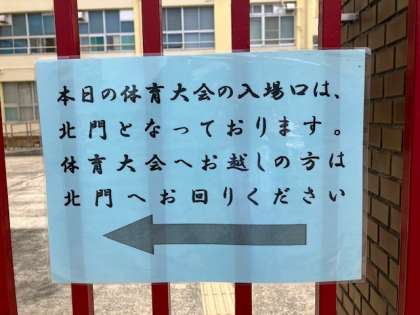 本日の体育大会の入場口は、
北門となっております。
体育大会へお越しの方は
北門へお回りください